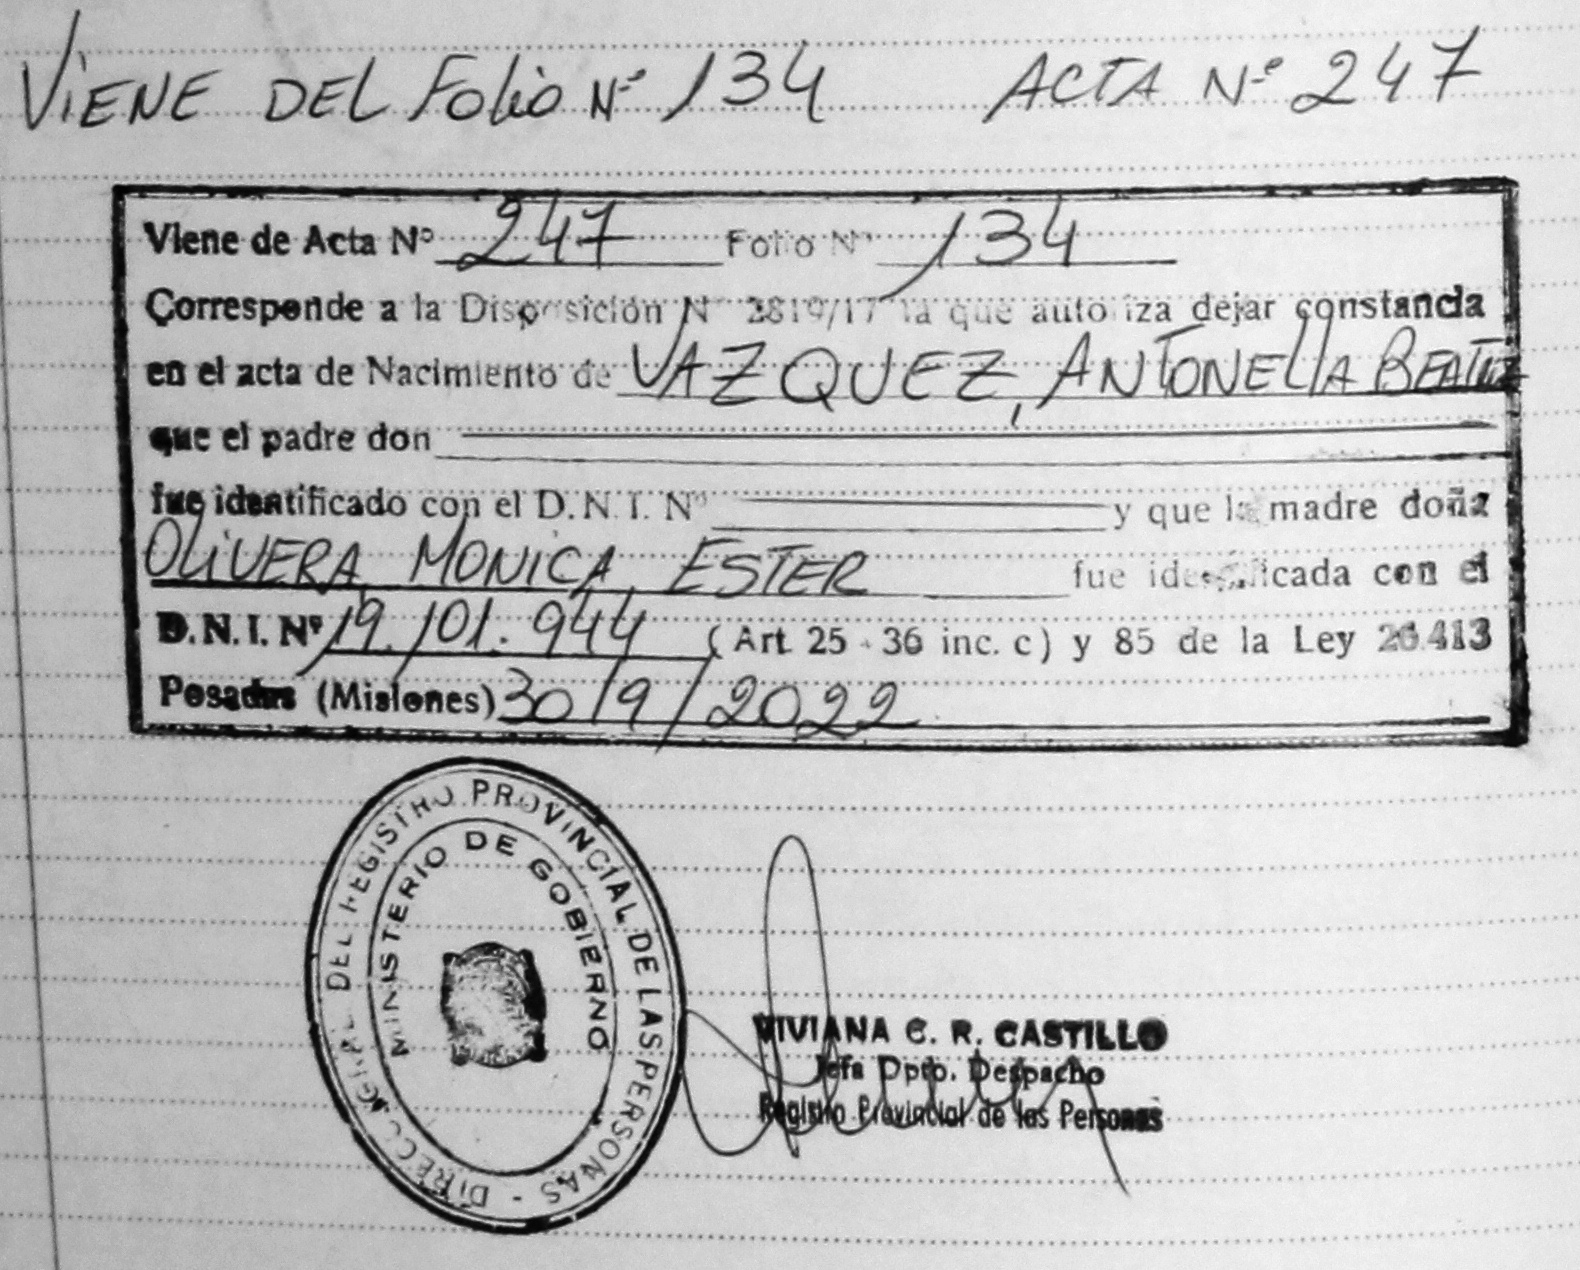 VIENE DEL Folio Nº 134 ACTA Nº 247
Viene de Acta Nº 247 Folio Nº 134
Corresponde a la Disposición Nº 2819/17 la que autoriza dejar constancia
en el acta de Nacimiento de VAZQUEZ, ANTONELLA BEATRIZ
que el padre don
fue identificado con el D.N.I. Nº y que la madre doña
OLIVERA MONICA ESTER fue identificada con el
D.N.I. Nº 19.101.944 (Art. 25 - 36 inc. c) y 85 de la Ley 26.413
Posadas (Misiones) 30/9/2022
DIRECC. GRAL. DEL REGISTRO PROVINCIAL DE LAS PERSONAS -
MINISTERIO DE GOBIERNO
VIVIANA C. R. CASTILLO
Jefa Dpto. Despacho
Registro Provincial de las Personas